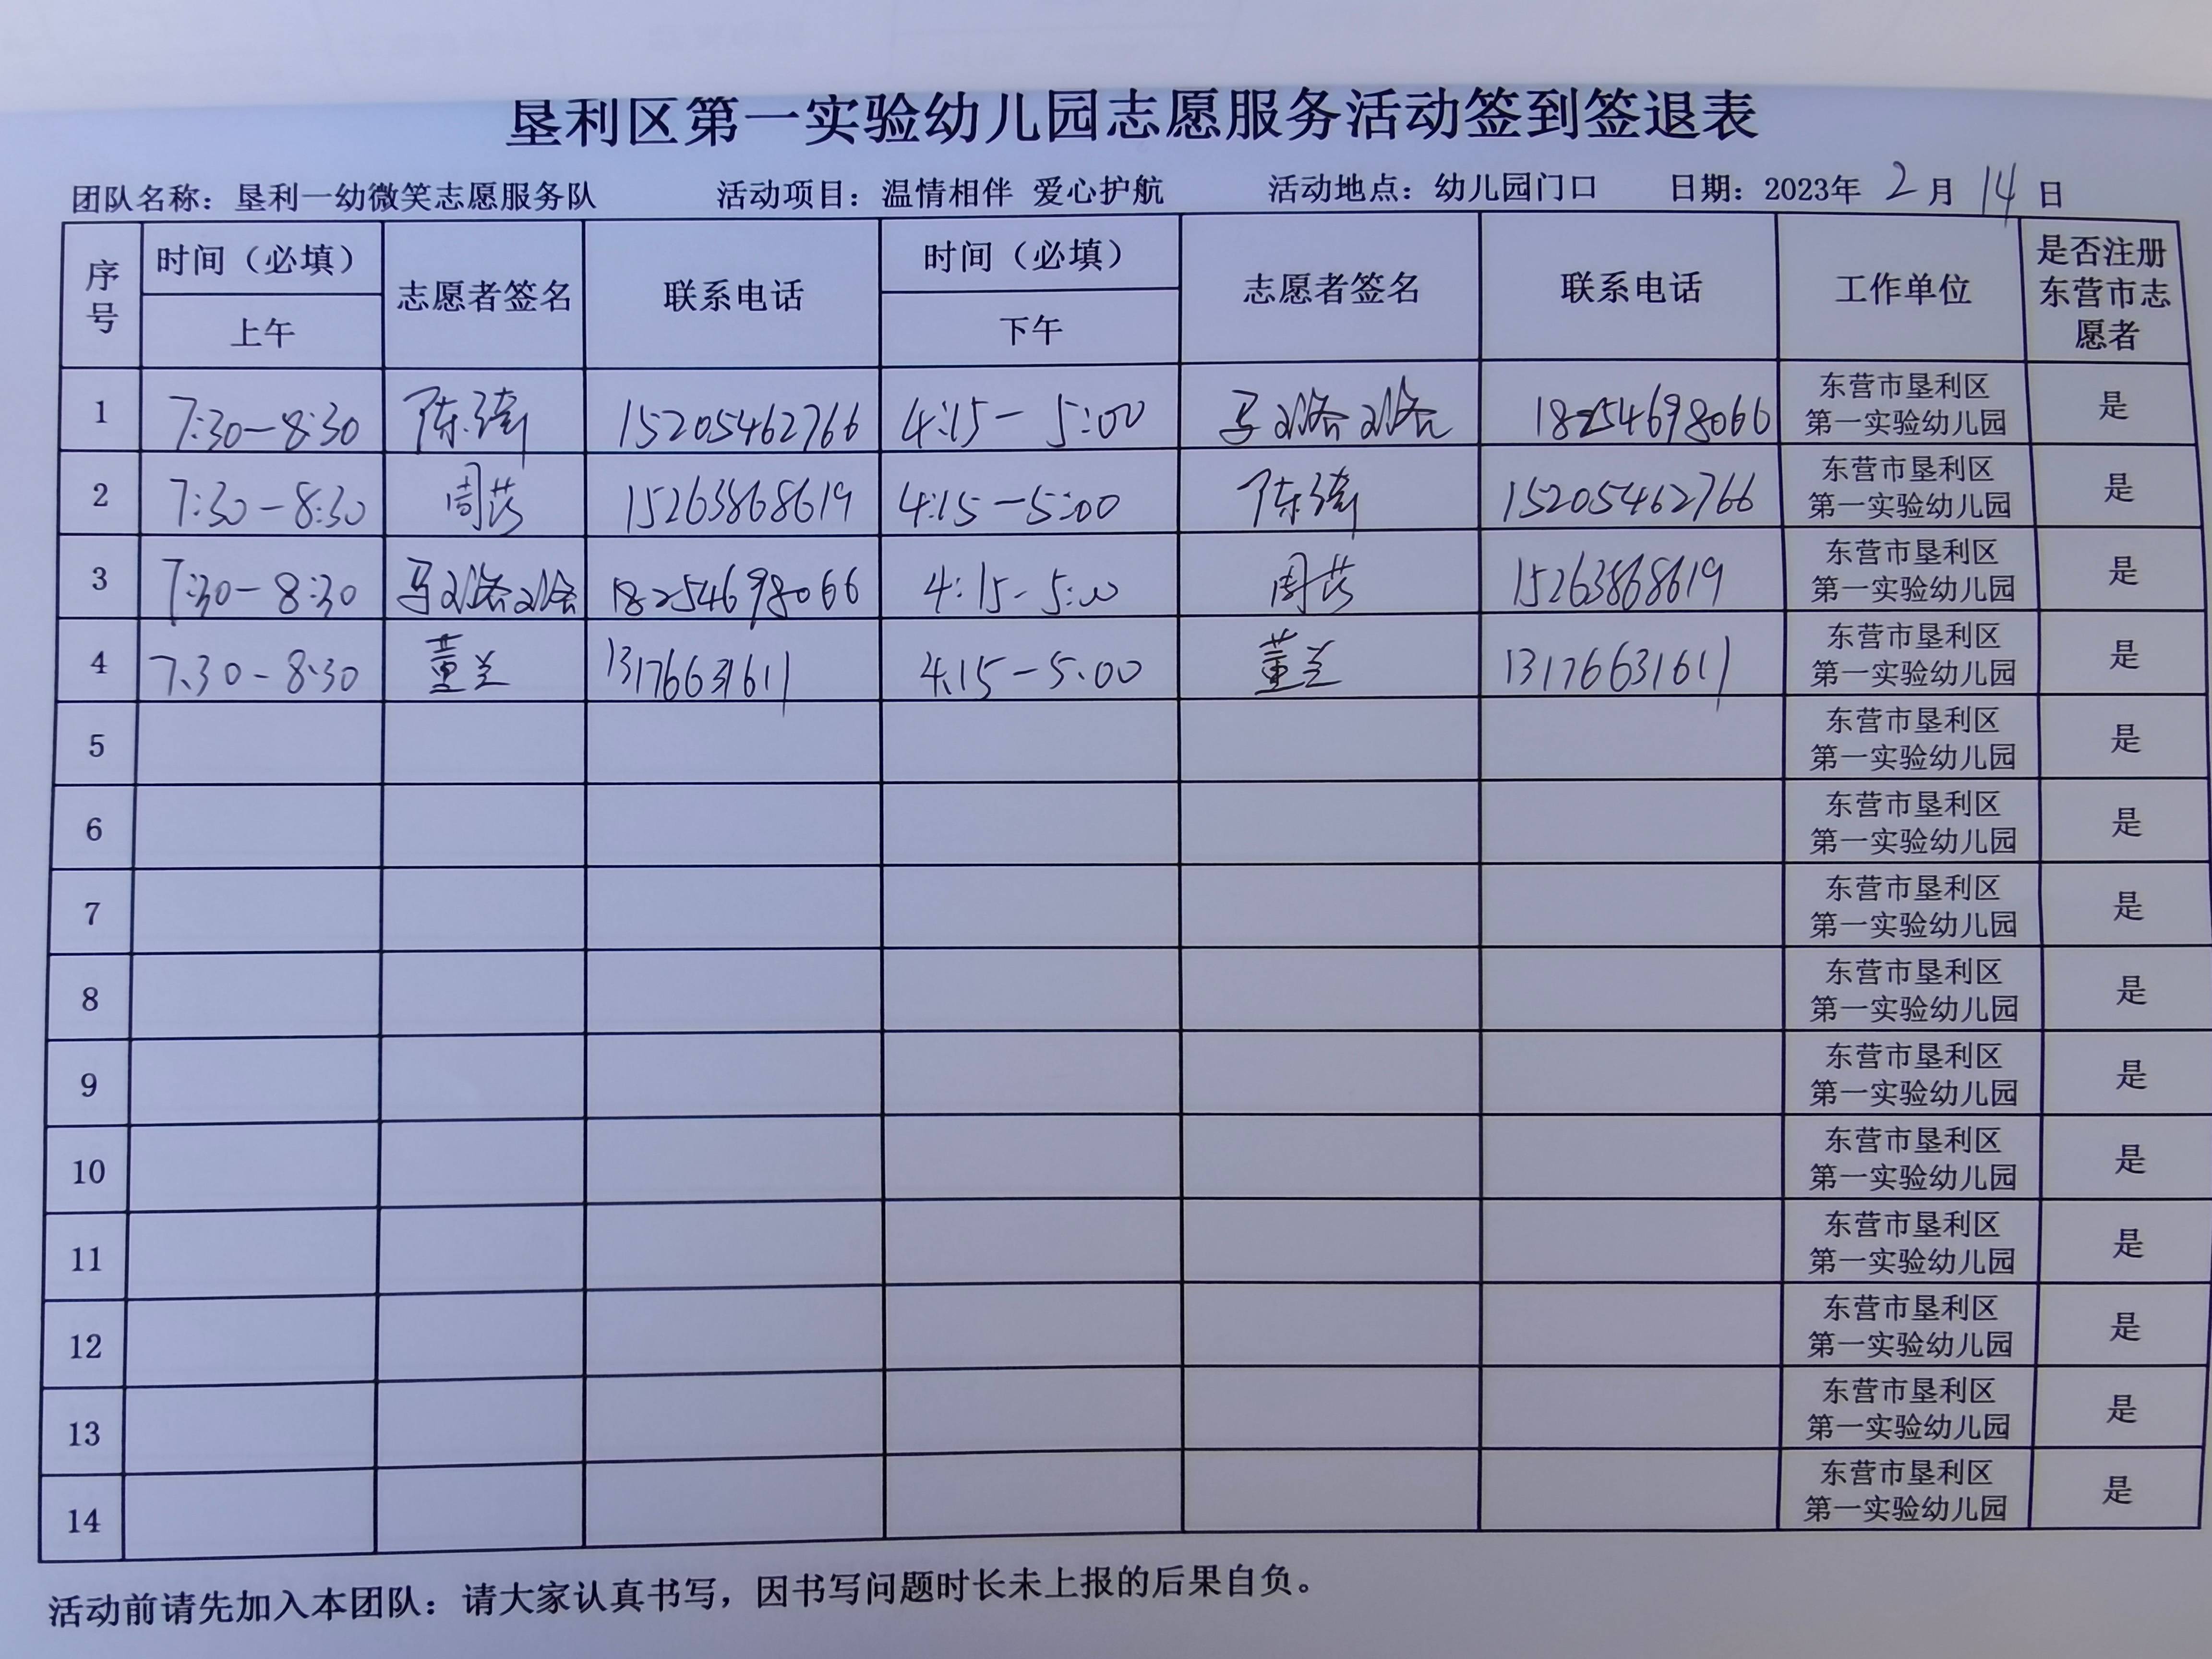 垦利区第一实验幼儿园志愿服务活动签到签退表
团队名称：垦利一幼微笑志愿服务队 活动项目：温情相伴 爱心护航 活动地点：幼儿园门口 日期：2023年 2 月 14 日
序号 时间（必填） 上午 志愿者签名 联系电话 时间（必填） 下午 志愿者签名 联系电话 工作单位 是否注册东营市志愿者
1 7:30-8:30 陈 15205462766 4:15-5:00 马璐璐 18254698066 东营市垦利区第一实验幼儿园 是
2 7:30-8:30 周 15263868619 4:15-5:00 陈 15205462766 东营市垦利区第一实验幼儿园 是
3 7:30-8:30 马璐璐 18254698066 4:15-5:00 周 15263868619 东营市垦利区第一实验幼儿园 是
4 7.30-8.30 董兰 13176631611 4.15-5.00 董兰 13176631611 东营市垦利区第一实验幼儿园 是
5 东营市垦利区第一实验幼儿园 是
6 东营市垦利区第一实验幼儿园 是
7 东营市垦利区第一实验幼儿园 是
8 东营市垦利区第一实验幼儿园 是
9 东营市垦利区第一实验幼儿园 是
10 东营市垦利区第一实验幼儿园 是
11 东营市垦利区第一实验幼儿园 是
12 东营市垦利区第一实验幼儿园 是
13 东营市垦利区第一实验幼儿园 是
14 东营市垦利区第一实验幼儿园 是
活动前请先加入本团队：请大家认真书写，因书写问题时长未上报的后果自负。